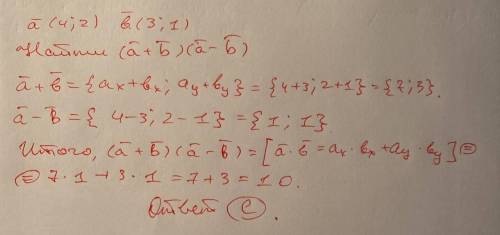 ā (4; 2) b̄ (3; 1)
Найти (ā + b̄)(ā - b̄)
ā + b̄ = {aₓ + bₓ; aᵧ + bᵧ} = {4+3; 2+1} = {7; 3}.
ā - b̄ = {4-3; 2-1} = {1; 1}
Итого, (ā + b̄)(ā - b̄) = [ā · b̄ = aₓ · bₓ + aᵧ · bᵧ] ⊜
⊜ 7 · 1 + 3 · 1 = 7 + 3 = 10.
Ответ (C).